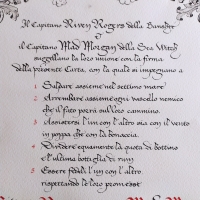 Il Capitano Riven Rogers della Banshee
e
il Capitano Mad Morgan della Sea Witch
suggellano la loro unione con la firma
della presente Carta, con la quale si impegnano a
1 Salpare assieme nel settimo mare
2 Arrembare assieme ogni vascello nemico
che il fato porrà sul loro cammino
3 Assistersi l'un con l'altro sia con il vento
in poppa che con la bonaccia
4 Dividere equamente la quota di bottino
e l'ultima bottiglia di rum
5 Essere fedeli l'un con l'altro
rispettando le loro promesse